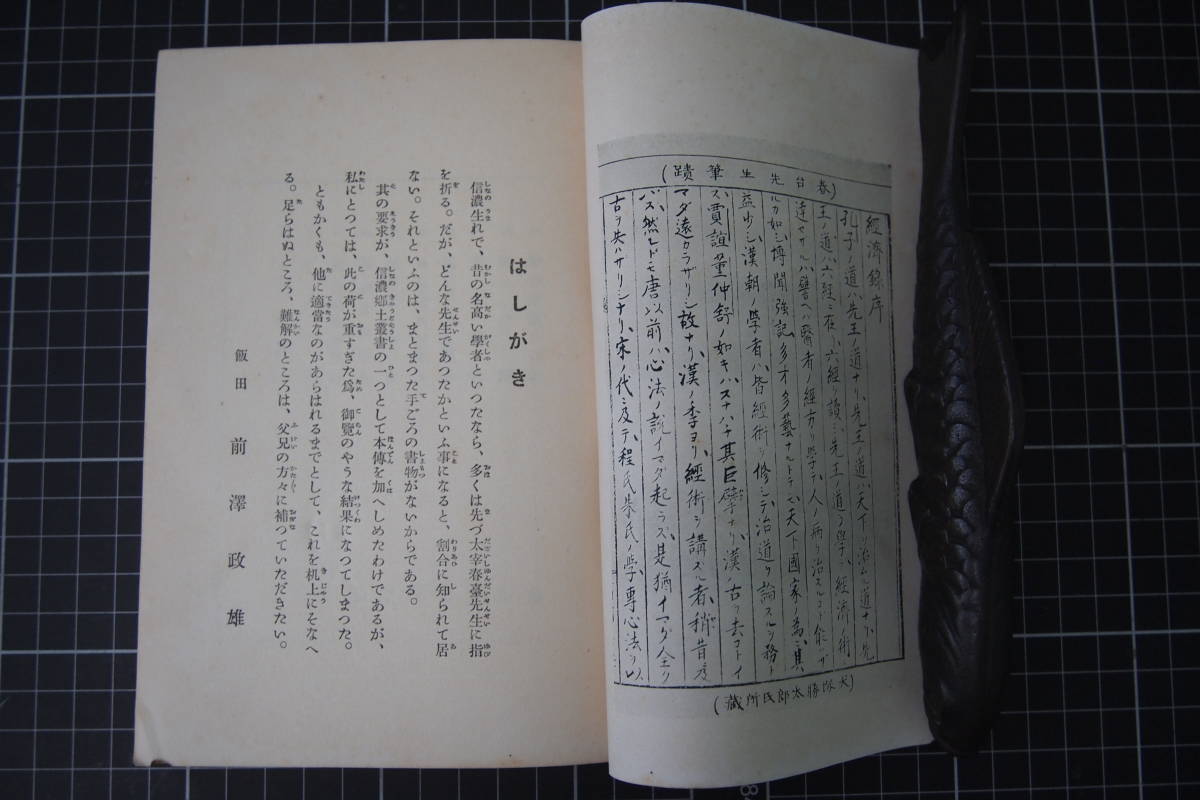 (春台先生筆蹟)
經濟錄序
孔子ノ道ハ先王ノ道ナリ、先王ノ道ハ天下ヲ治ムル道ナリ、先
王ノ道ハ六經ニ在リ、六經ヲ讀ミ先王ノ道ヲ學テ經濟ノ術ニ
達セサルハ譬ヘハ醫者ノ經方ヲ學テ人ノ病ヲ治スルコト能ハザ
ルカ如シ、博聞強記多才多藝ナルトテモ天下國家ノ為ニ其
益少シ、漢朝ノ學者ハ皆經術ヲ修シテ治道ヲ論スルヲ務トス
賈誼董仲舒ノ如キハスナハチ其巨擘ナリ、漢ノ古ヲ去コトイ
マダ遠カラザリシ故ナリ、漢ノ季ヨリ、經術ヲ講ズル者稍昔ニ及
バズ、然レドモ唐以前ハ心法ノ説イマダ起ラズ、是猶イマダ全ク
古ヲ失ハサリシナリ、宋ノ代ニ及テ、程氏朱氏ノ學專心法ヲ
勝太郎氏所藏)
はしがき
信濃生れで、昔の名高い學者といつたなら、多くは先づ太宰春臺先生に指
を折る。だが、どんな先生であつたかといふ事になると、割合に知られて居
ない。それといふのは、まとまつた手ごろの書物がないからである。
其の要求が、信濃鄕土叢書の一つとして本傳を加へしめたわけであるが、
私にとつては、此の荷が重すぎた爲、御覽のやうな結果になつてしまつた。
ともかくも、他に適當なのがあらはれるまでとして、これを机上にそなへ
る。足らはぬところ、難解のところは、父兄の方々に補つていただきたい。
飯田 前澤政雄